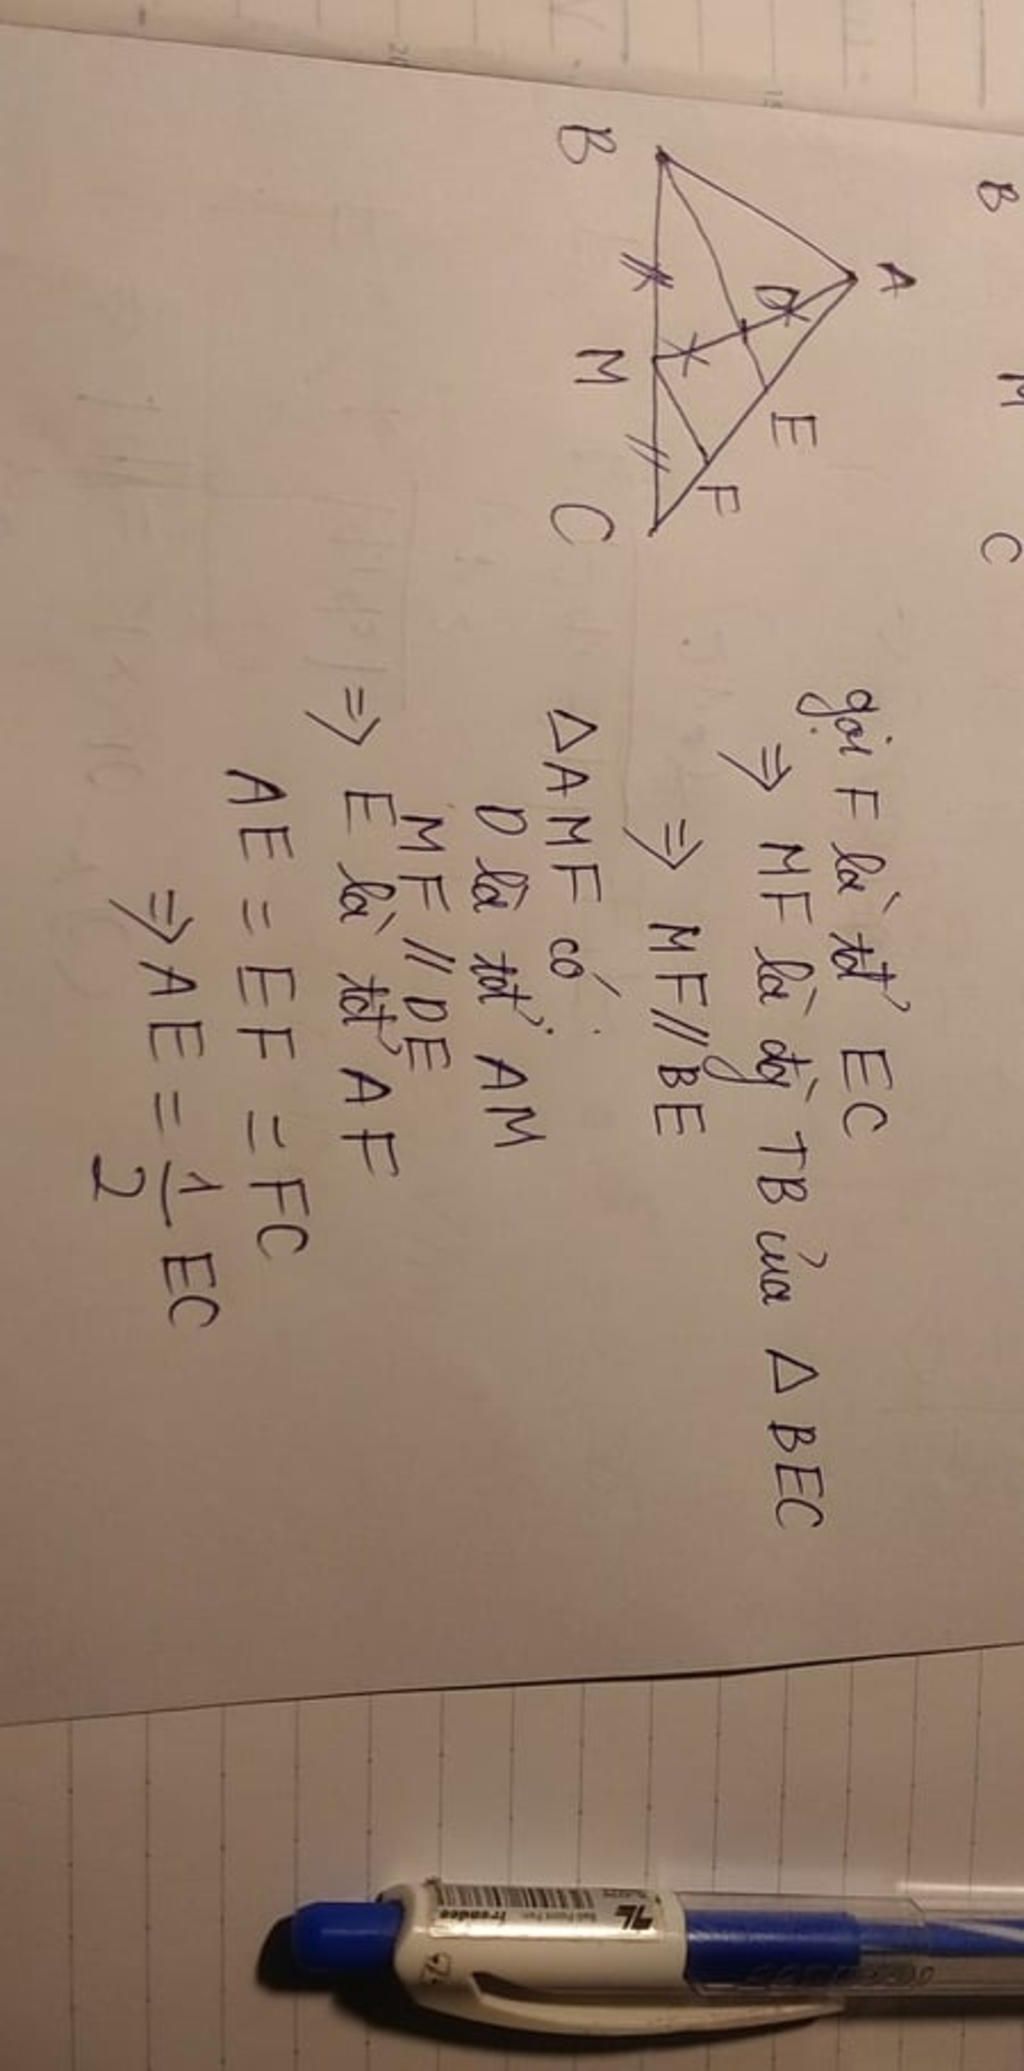 B M C
A
B M C
D
E
F
gọi F là tđ EC
⇒ MF là đg TB của Δ BEC
⇒ MF // BE
Δ AMF có
D là tđ AM
MF // DE
⇒ E là tđ AF
AE = EF = FC
⇒ AE = 1/2 EC
TL
Trendee
Ball Point Pen